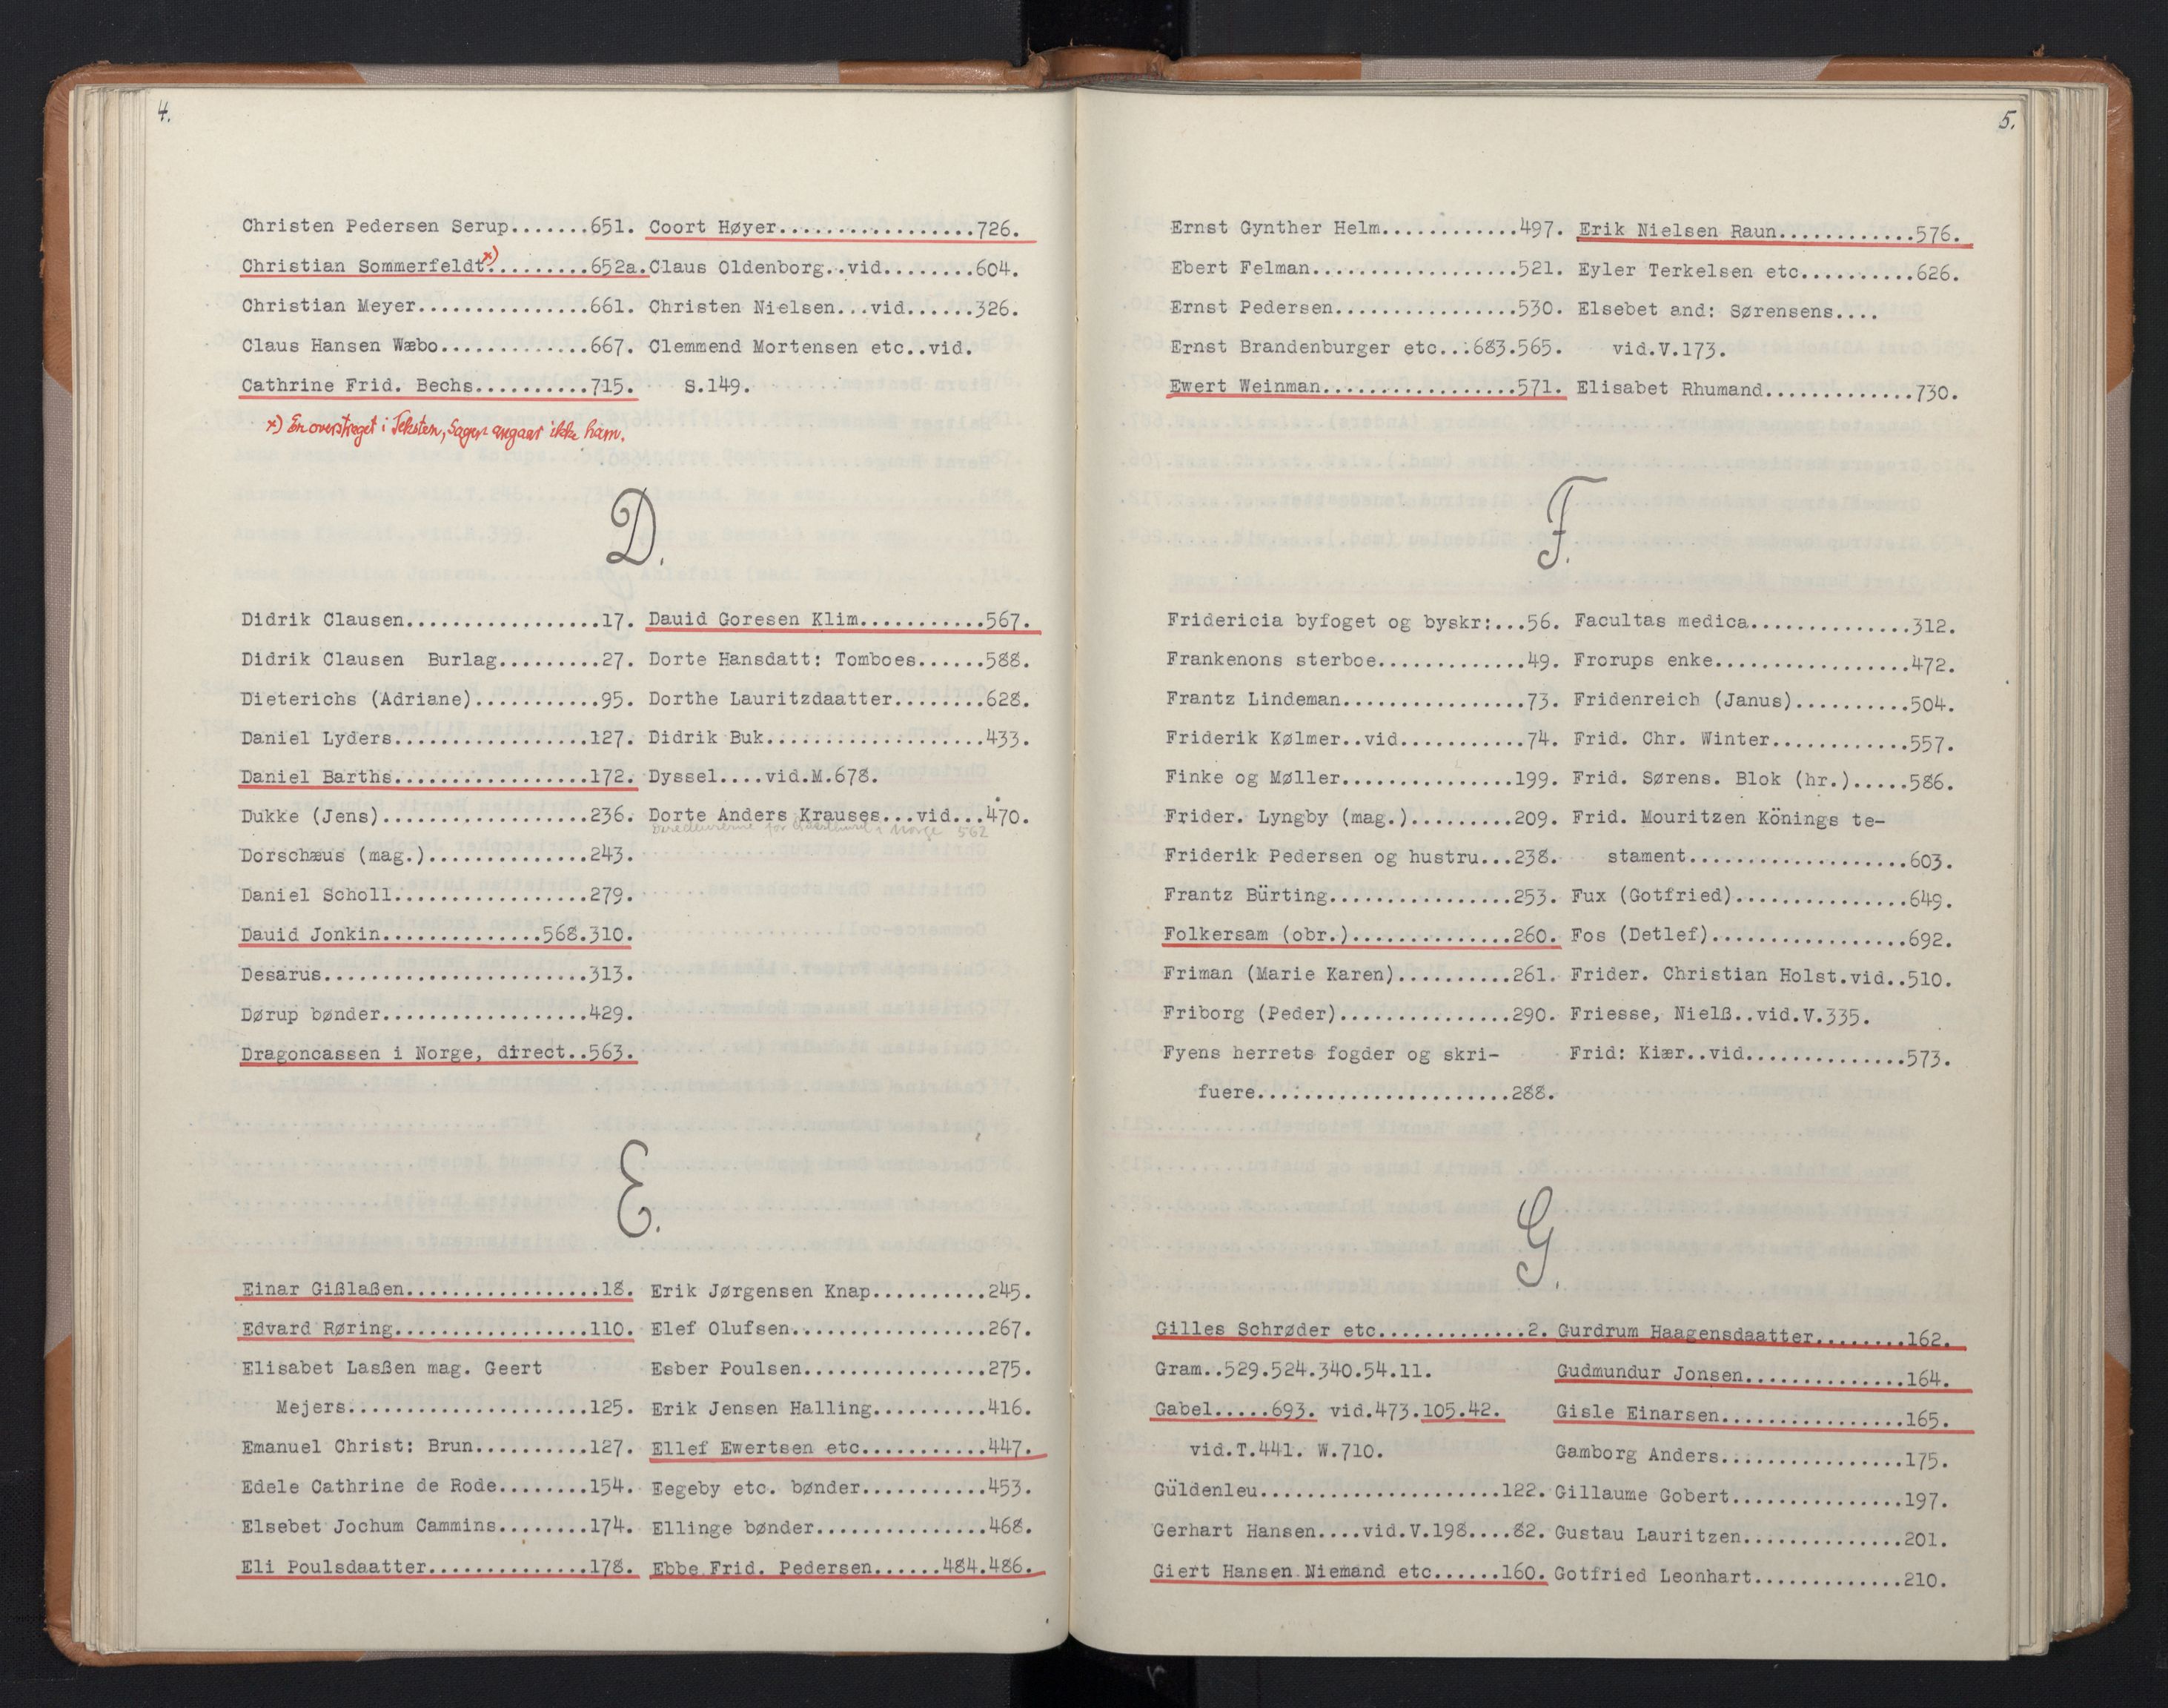 4.
Christen Pedersen Serup.......651.
Christian Sommerfeldt x).........652a.
Christian Meyer...............661.
Claus Hansen Wæbo.............667.
Cathrine Frid. Bechs..........715.
x) En overstreget i Teksten, Sagen angaar ikke ham.
Coort Høyer.................726.
Claus Oldenborg..vid........604.
Christen Nielsen...vid......326.
Clemmend Mortensen etc..vid.
S.149.
D.
Didrik Clausen.................17.
Didrik Clausen Burlag.........27.
Dieterichs (Adriane)...........95.
Daniel Lyders.................127.
Daniel Barths.................172.
Dukke (Jens)..................236.
Dorschæus (mag.)..............243.
Daniel Scholl.................279.
Dauid Jonkin..............568.310.
Desarus.......................313.
Dørup bønder..................429.
Dragoncassen i Norge, direct..563.
Dauid Goresen Klim...........567.
Dorte Hansdatt: Tomboes......588.
Dorthe Lauritzdaatter........628.
Didrik Buk...................433.
Dyssel....vid.M.678.
Dorte Anders Krauses...vid...470.
i Norge 562
E.
Einar Gißlaßen.................18.
Edvard Røring.................110.
Elisabet Lasßen mag. Geert
Mejers.....................125.
Emanuel Christ: Brun..........127.
Edele Cathrine de Rode........154.
Elsebet Jochum Cammins........174.
Eli Poulsdaatter..............178.
Erik Jørgensen Knap..........245.
Elef Olufsen.................267.
Esber Poulsen................275.
Erik Jensen Halling..........416.
Ellef Ewertsen etc...........447.
Eegeby etc. bønder...........453.
Ellinge bønder...............468.
Ebbe Frid. Pedersen......484.486.
5.
Ernst Gynther Helm............497.
Ebert Felman..................521.
Ernst Pedersen................530.
Ernst Brandenburger etc...683.565.
Ewert Weinman.................571.
Erik Nielsen Raun............576.
Eyler Terkelsen etc..........626.
Elsebet and: Sørensens....
vid.V.173.
Elisabet Rhumand.............730.
F.
Fridericia byfoget og byskr:...56.
Frankenons sterboe.............49.
Frantz Lindeman................73.
Friderik Kølmer..vid...........74.
Finke og Møller...............199.
Frider. Lyngby (mag.).........209.
Friderik Pedersen og hustru...238.
Frantz Bürting................253.
Folkersam (obr.)..............260.
Friman (Marie Karen)..........261.
Friborg (Peder)...............290.
Fyens herrets fogder og skri-
fuere......................288.
Facultas medica..............312.
Frorups enke.................472.
Fridenreich (Janus)..........504.
Frid. Chr. Winter............557.
Frid. Sørens. Blok (hr.).....586.
Frid. Mouritzen Könings te-
stament...................603.
Fux (Gotfried)...............649.
Fos (Detlef).................692.
Frider. Christian Holst.vid..510.
Friesse, Nielß..vid.V.335.
Frid: Kiær..vid..............573.
G.
Gilles Schrøder etc.............2.
Gram..529.524.340.54.11.
Gabel.....693. vid.473.105.42.
vid.T.441. W.710.
Güldenleu.....................122.
Gerhart Hansen....vid.V.198....82.
Giert Hansen Niemand etc......160.
Gurdrum Haagensdaatter........162.
Gudmundur Jonsen..............164.
Gisle Einarsen................165.
Gamborg Anders................175.
Gillaume Gobert...............197.
Gustau Lauritzen..............201.
Gotfried Leonhart.............210.